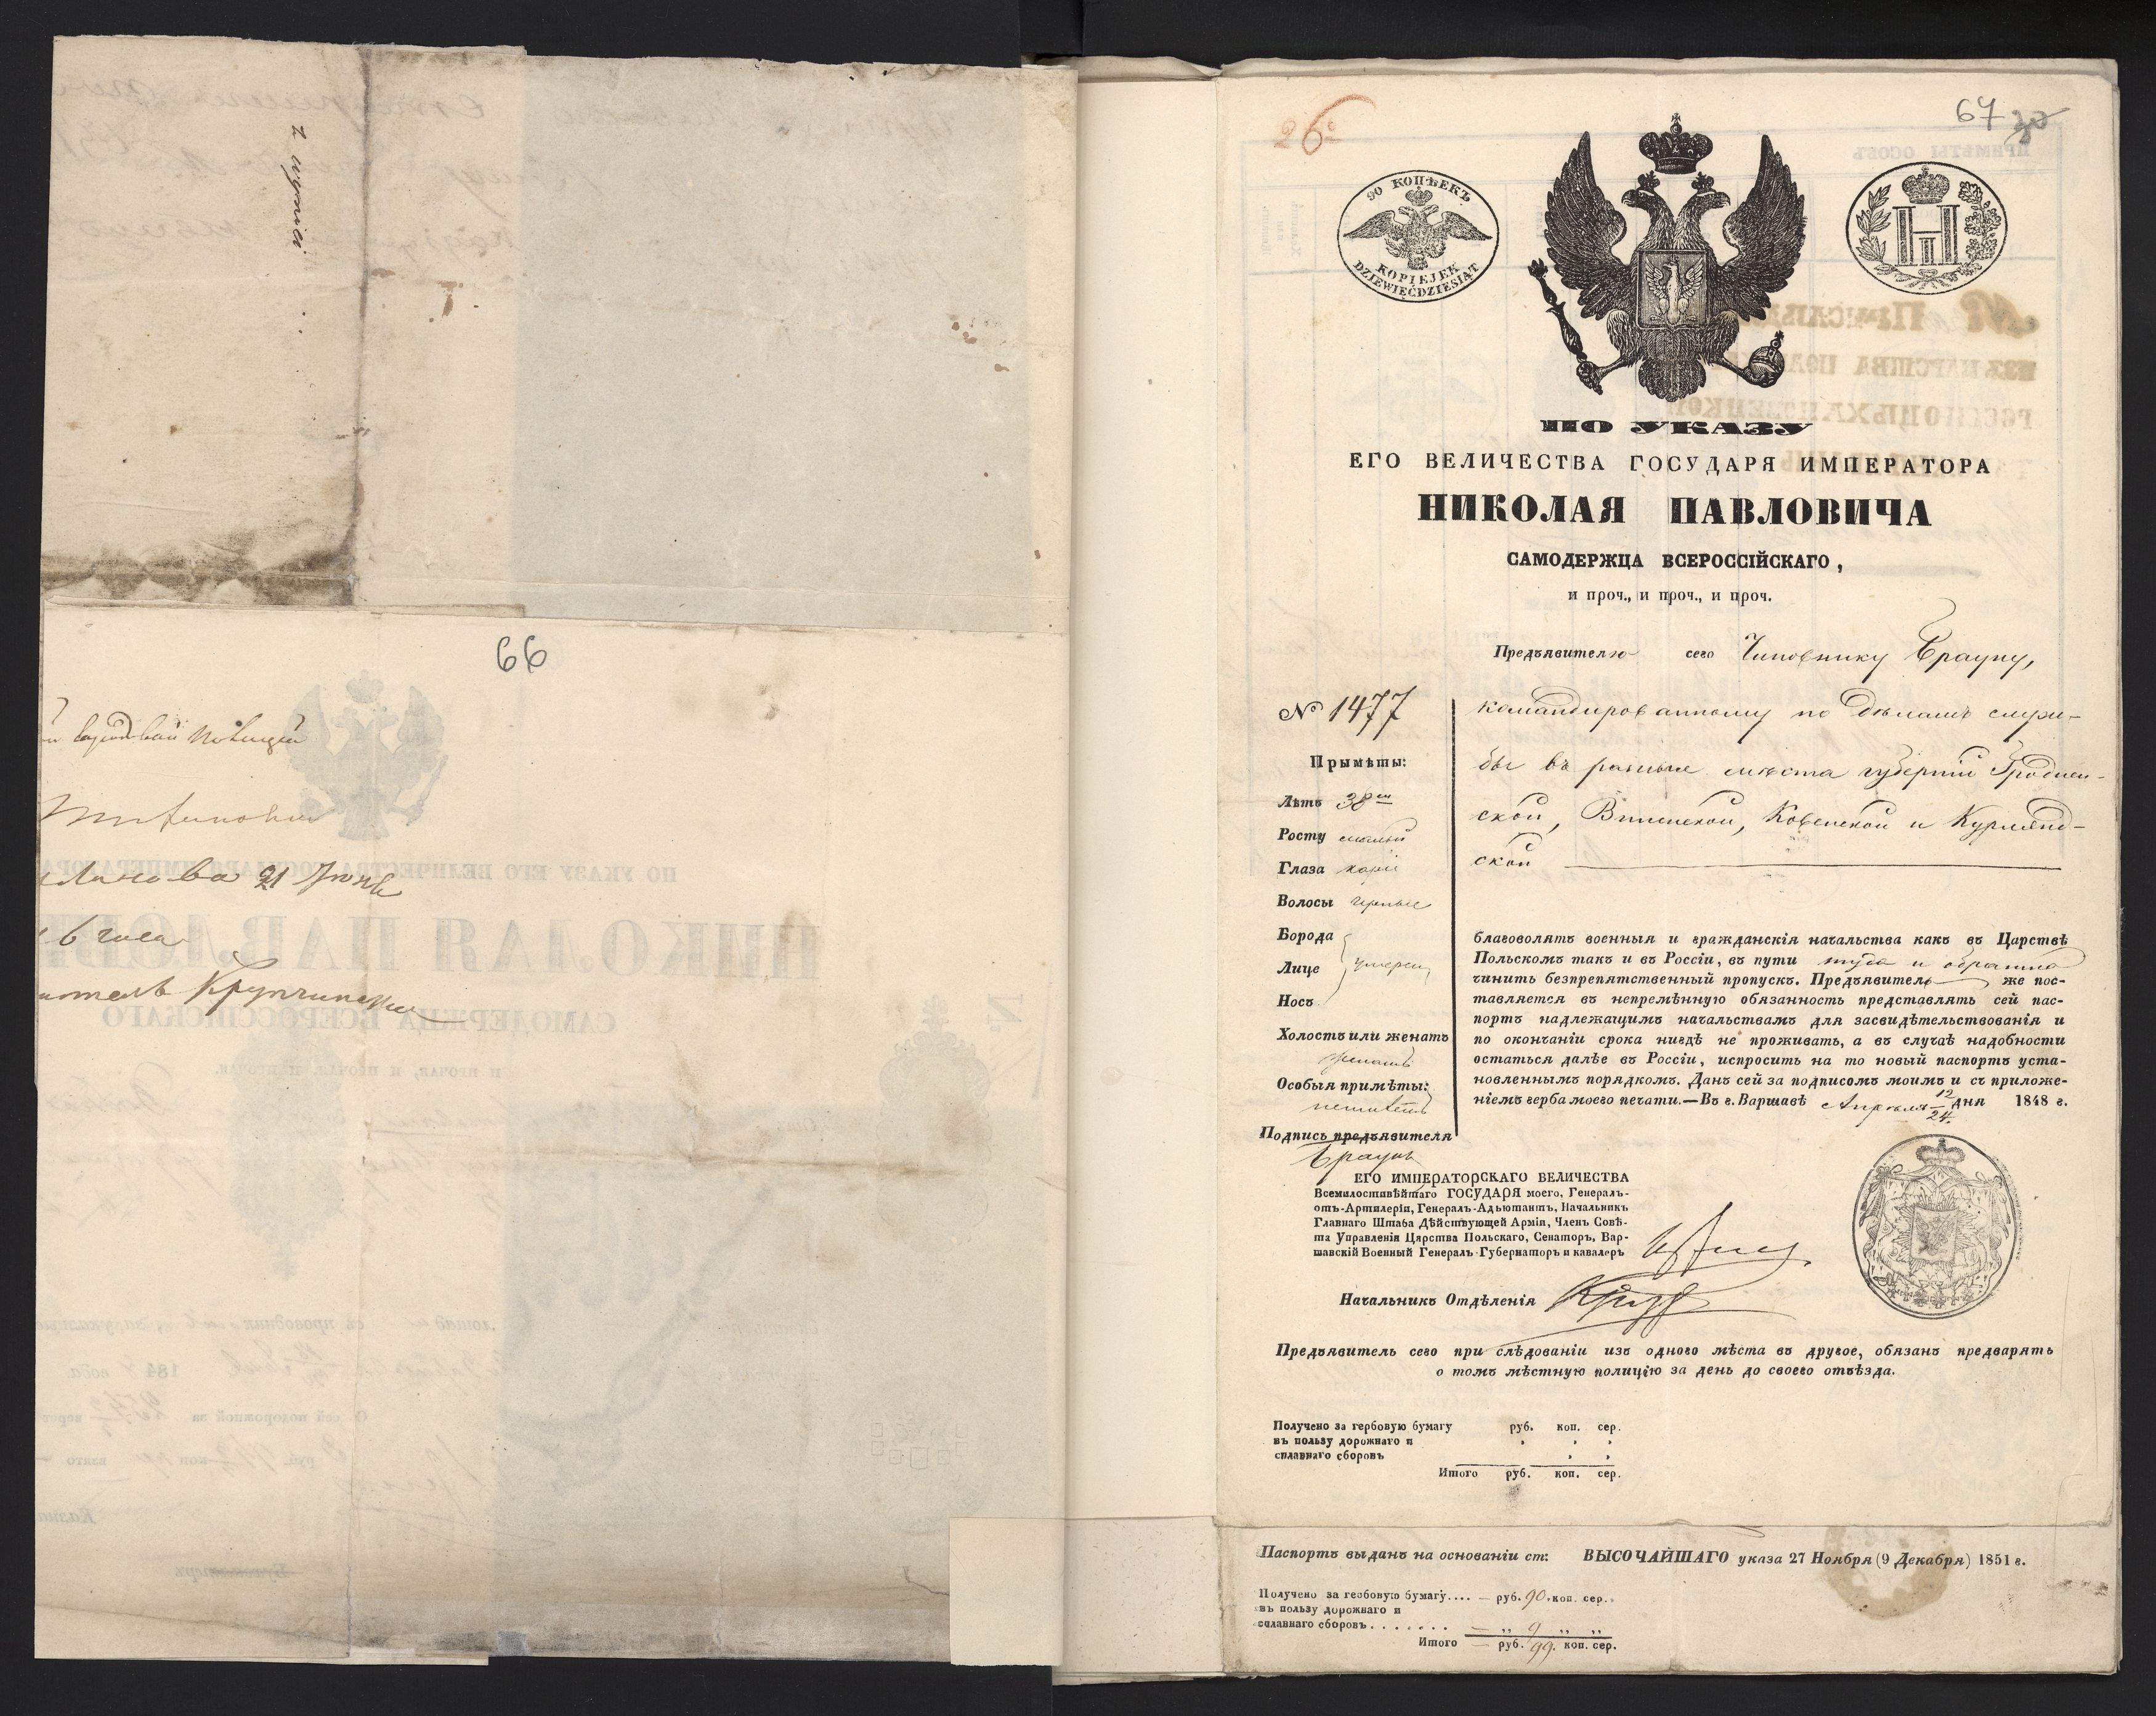 z wyspien
66
21 Июня
6 часа
26
67 30
90 КОПѢЕКЪ
KOPIEJEK
DZIEWIĘĆDZIESIĄT
Н
I
ПО УКАЗУ
ЕГО ВЕЛИЧЕСТВА ГОСУДАРЯ ИМПЕРАТОРА
НИКОЛАЯ ПАВЛОВИЧА
САМОДЕРЖЦА ВСЕРОССІЙСКАГО,
и проч., и проч., и проч.
Предъявителю сего Чиновнику Брауну,
командированному по дѣламъ служ-
бы въ разные мѣста губерній Гроднен-
ской, Виленской, Ковенской и Курлянд-
ской
№ 1477
Прымѣты:
Лѣтъ 38
Росту малый
Глаза каріи
Волосы черные
Борода
Лице умерен
Носъ
Холостъ или женатъ
женатъ
Особыя примѣты:
Подпись предъявителя
Браунъ
благоволятъ военныя и гражданскія начальства какъ въ Царствѣ
Польскомъ такъ и въ Россіи, въ пути туда и обратно
чинить безпрепятственный пропускъ. Предъявитель же пос-
тавляется въ непремѣнную обязанность представлять сей пас-
портъ надлежащимъ начальствамъ для засвидѣтельствованія и
по окончаніи срока нигдѣ не проживать, а въ случаѣ надобности
остаться далѣе въ Россіи, испросить на то новый паспортъ уста-
новленнымъ порядкомъ. Данъ сей за подписомъ моимъ и съ приложе-
ніемъ герба моего печати.—Въ г. Варшавѣ Апрѣля 12/24 дня 1848 г.
ЕГО ИМПЕРАТОРСКАГО ВЕЛИЧЕСТВА
Всемилостивѣйшаго ГОСУДАРЯ моего, Генералъ-
отъ-Артилеріи, Генералъ-Адъютантъ, Начальникъ
Главнаго Штаба Дѣйствующей Арміи, Членъ Совѣ-
та Управленія Царства Польскаго, Сенаторъ, Вар-
шавскій Военный Генералъ-Губернаторъ и кавалеръ
Начальникъ Отдѣленія
Предъявитель сего при слѣдованіи изъ одного мѣста въ другое, обязанъ предварять
о томъ мѣстную полицію за день до своего отъѣзда.
Получено за гербовую бумагу руб. коп. сер.
въ пользу дорожнаго и
сплавнаго сборовъ
Итого руб. коп. сер.
Паспортъ выданъ на основаніи ст: ВЫСОЧАЙШАГО указа 27 Ноября (9 Декабря) 1851 г.
Получено за гербовую бумагу.... — руб. 90. коп. сер.
въ пользу дорожнаго и
сплавнаго сборовъ....... — „ 9 „ „
Итого — руб. 99. коп. сер.